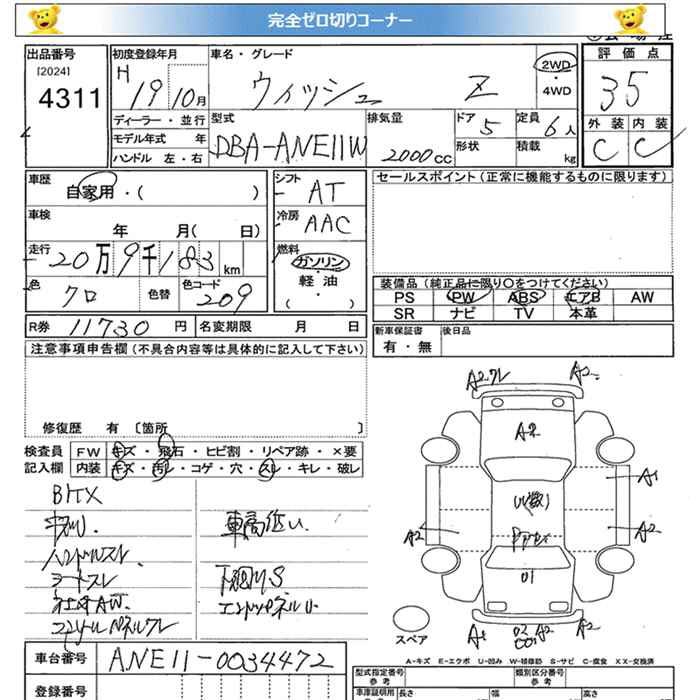 完全ゼロ切りコーナー
出品番号
[2024]
4311
初度登録年月
H 19 10月
車名・グレード
ウィッシュ Z
2WD
・
4WD
評価点
3.5
外装 内装
C C
ディーラー・並行
モデル年式 年
ハンドル 左・右
型式
DBA-ANE11W
排気量
2000cc
ドア 5
形状
定員 6人
積載 kg
車歴
自家用・( )
車検
年 月( 日)
走行
20万9千183km
色
クロ
色替
色コード
209
シフト
AT
冷房
AAC
燃料
ガソリン
・
軽・油
( )
セールスポイント(正常に機能するものに限ります)
装備品(純正品に限り○をつけてください)
PS PW ABS エアB AW
SR ナビ TV 本革
R券 11730円 名変期限 月 日
新車保証書 後日品
有・無
注意事項申告欄(不具合内容等は具体的に記入して下さい)
修復歴 有 [箇所 ]
検査員
記入欄
FW キズ・飛石・ヒビ割・リペア跡・×要
内装 キズ・汚レ・コゲ・穴・スレ・キレ・破レ
ハンドルスレ
シートスレ
車高低い.
下回りS
A2
A2
A1
A2
A2
U1
A1
A2
A2
スペア
A-キズ E-エクボ U-凹み W-補修跡 S-サビ C-腐食 XX-交換済
車台番号 ANE11-0034472
登録番号
型式指定番号
参考
類別区分番号
参考
車庫証明用
参考
長さ 幅 高さ